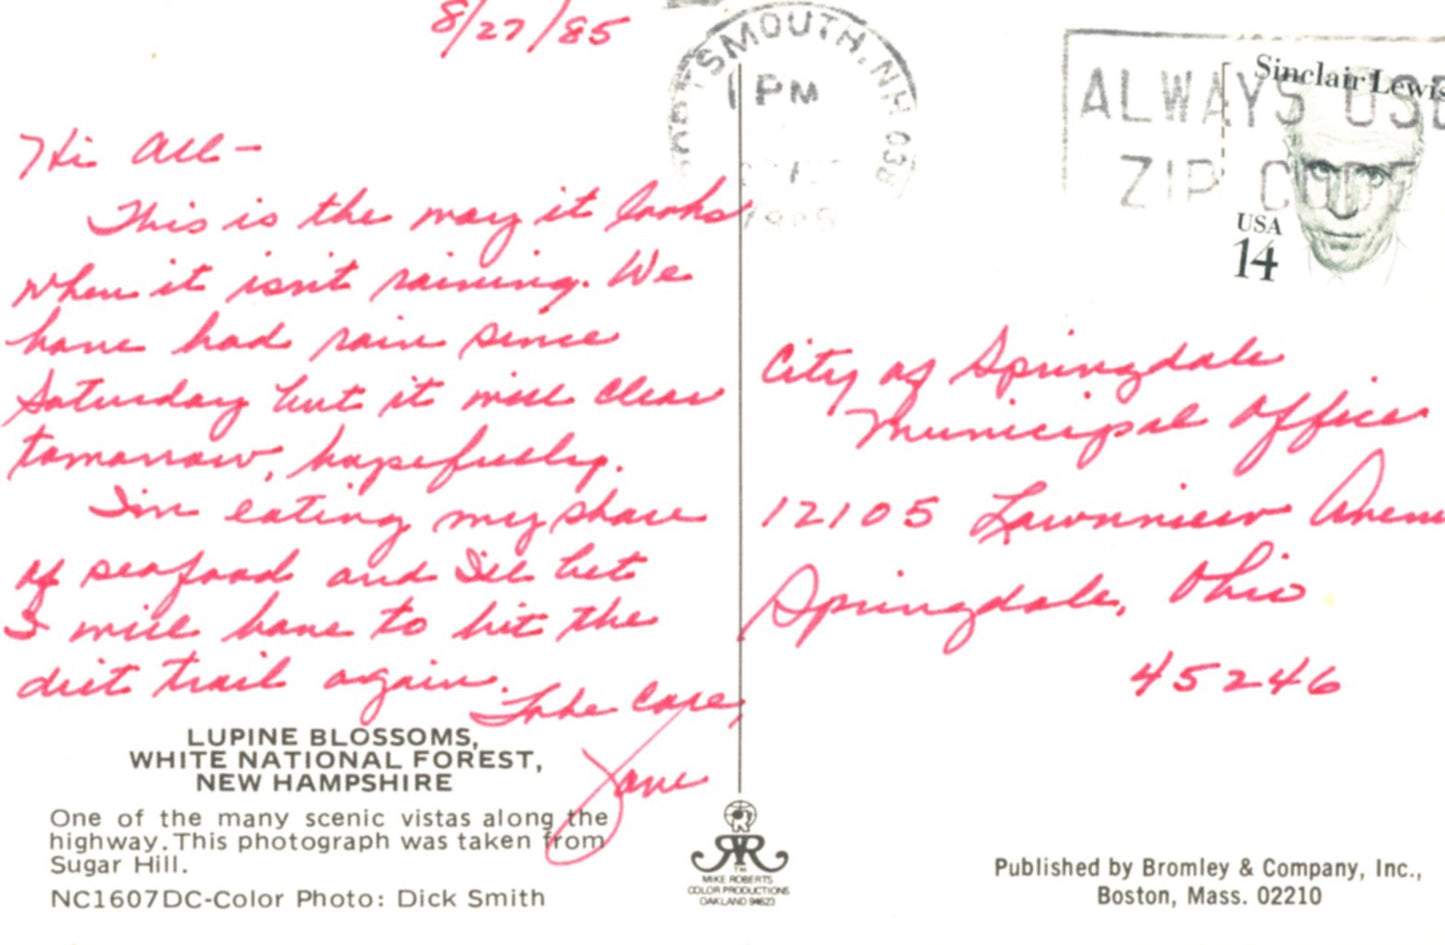 8/27/85
Hi All-
This is the way it looks
when it isn't raining. We
have had rain since
Saturday but it will clear
tomorrow, hopefully.
I'm eating my share
of seafood and I'll bet
I will have to hit the
diet trail again.
Take Care,
Jane
LUPINE BLOSSOMS,
WHITE NATIONAL FOREST,
NEW HAMPSHIRE
One of the many scenic vistas along the
highway. This photograph was taken from
Sugar Hill.
NC1607DC-Color Photo: Dick Smith
TSMOUTH, NH 038
PM
1985
ALWAYS USE
ZIP CODE
Sinclair Lewis
USA
14
City of Springdale
Municipal Office
12105 Lawnview Avenu
Springdale, Ohio
45246
MIKE ROBERTS
COLOR PRODUCTIONS
OAKLAND 94623
Published by Bromley & Company, Inc.,
Boston, Mass. 02210